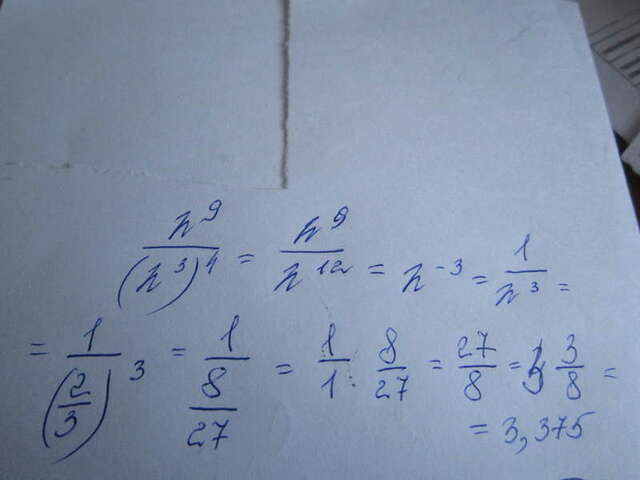 n⁹/(n³)⁴ = n⁹/n¹² = n⁻³ = 1/n³ =
= 1/(2/3)³ = 1/(8/27) = 1/1 : 8/27 = 27/8 = 3 3/8 =
= 3,375